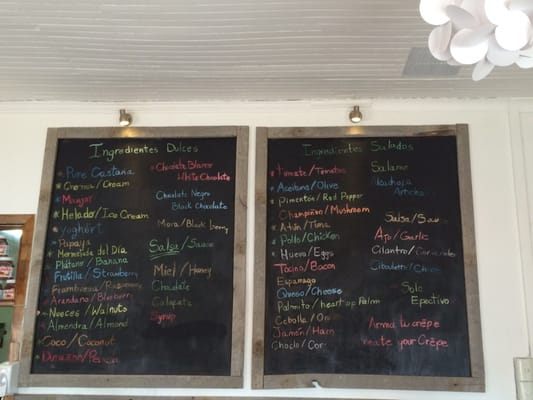 Ingredientes Dulces
Pure Castaña
Crema/Cream
Manjar
Helado/Ice Cream
yoghurt
Papaya
Mermelada del Día
Plátano/Banana
Frutilla/Strawberry
Frambuesa/Raspberry
Arandano/Blueberry
Nueces/Walnuts
Almendra/Almond
Coco/Coconut
Durazno/Peach
Chocolate Blanco
White Chocolate
Chocolate Negro
Black Chocolate
Mora/Black berry
Salsa/Sauce
Miel/Honey
Chocolate
Syrup
Ingredientes Salados
Tomate/Tomatos
Aceituna/Olive
Pimentón/Red Pepper
Champiñon/Mushroom
Atún/Tuna
Pollo/Chicken
Huevo/Eggs
Tocino/Bacon
Esparrago
Queso/Cheese
Palmito/heart of Palm
Cebolla/Onion
Jamón/Ham
Choclo/Corn
Salame
Salsa/Sauce
Ajo/Garlic
Cilantro/Coriander
Ciboulette/Chives
Solo
Efectivo
Arma tu crêpe
Create your Crêpe